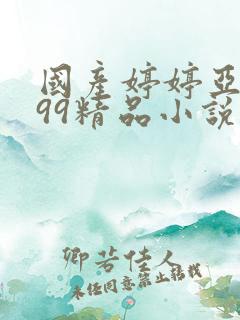 國產婷婷亞
99精品小說
卿若佳人
未经同意禁止转载